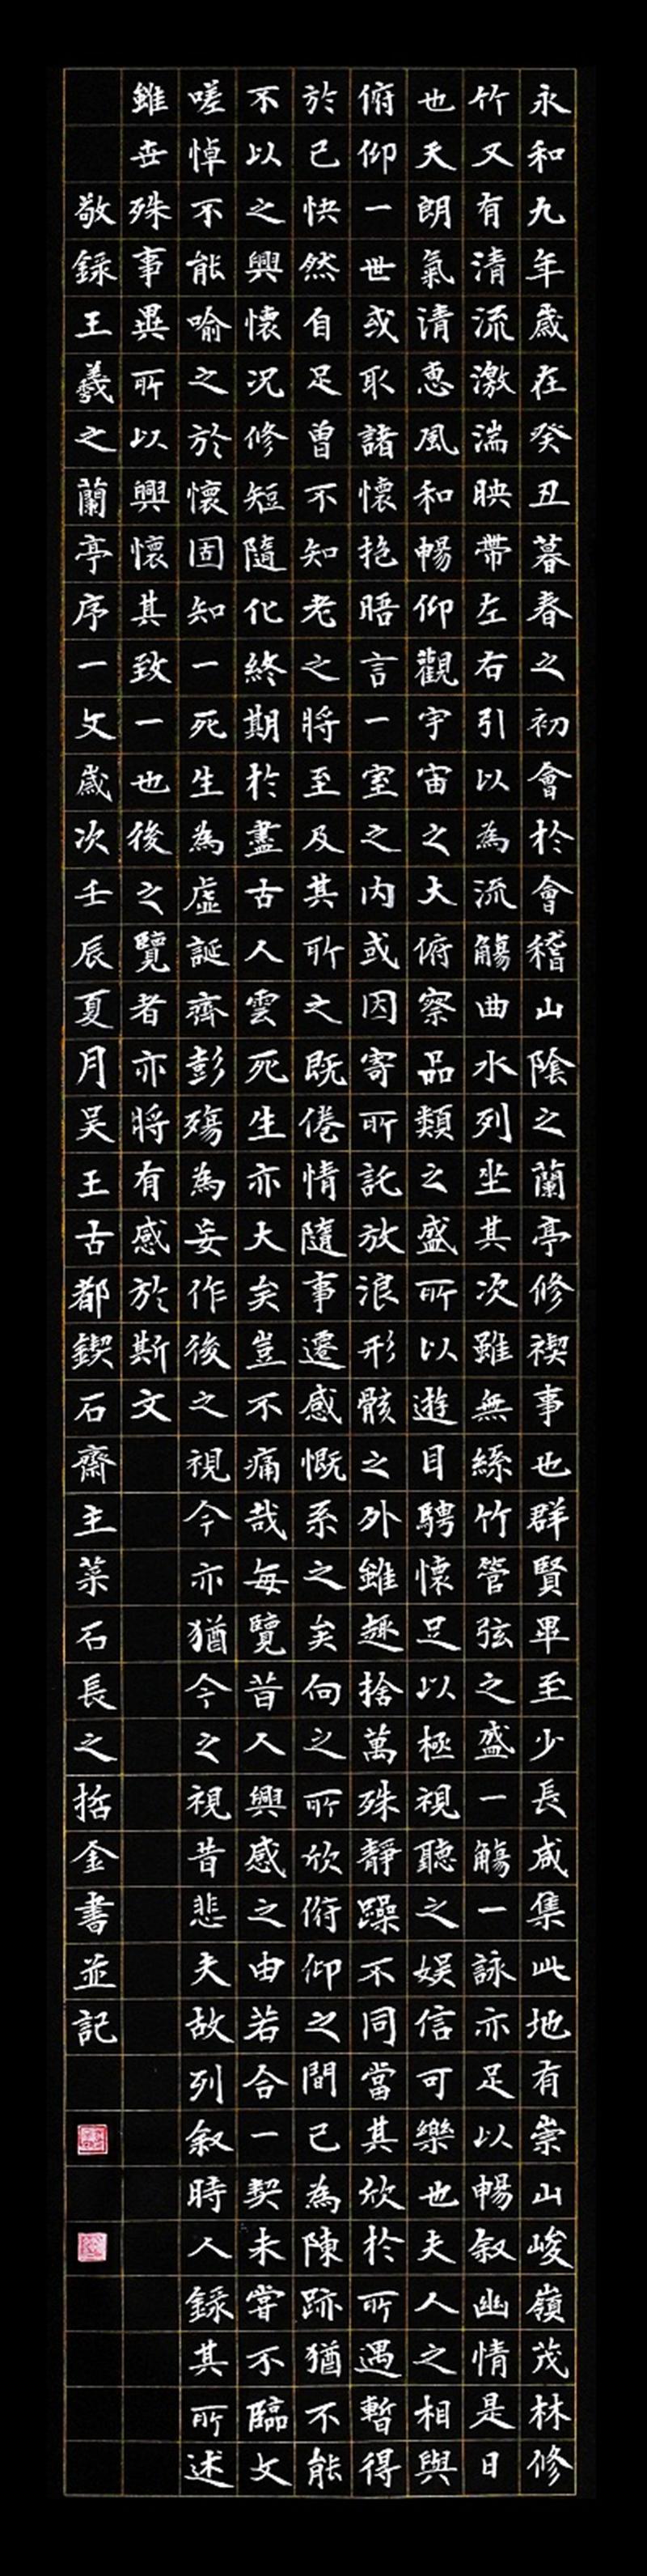 永和九年歲在癸丑暮春之初會於會稽山陰之蘭亭修禊事也群賢畢至少長咸集此地有崇山峻嶺茂林修
竹又有清流激湍映帶左右引以為流觴曲水列坐其次雖無絲竹管弦之盛一觴一詠亦足以暢叙幽情是日
也天朗氣清惠風和暢仰觀宇宙之大俯察品類之盛所以遊目騁懷足以極視聽之娛信可樂也夫人之相與
俯仰一世或取諸懷抱晤言一室之內或因寄所託放浪形骸之外雖趣捨萬殊靜躁不同當其欣於所遇暫得
於己快然自足曾不知老之將至及其所之既倦情隨事遷感慨系之矣向之所欣俯仰之間已為陳跡猶不能
不以之興懷况修短隨化終期於盡古人雲死生亦大矣豈不痛哉每覽昔人興感之由若合一契未嘗不臨文
嗟悼不能喻之於懷固知一死生為虛誕齊彭殤為妄作後之視今亦猶今之視昔悲夫故列叙時人錄其所述
雖世殊事異所以興懷其致一也後之覽者亦將有感於斯文
敬錄王羲之蘭亭序一文歲次壬辰夏月吴王古都鍥石齋主菜石長之括金書並記